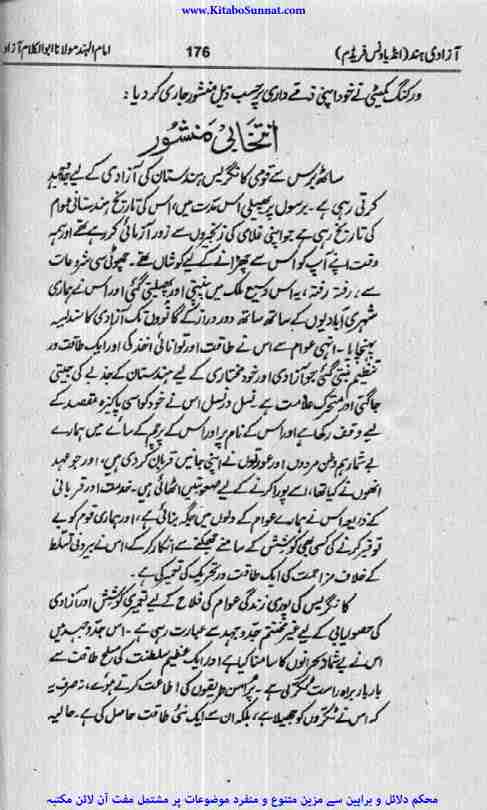 www.KitaboSunnat.com
آزادی ہند (انڈیا ونس فریڈم) 176 امام الہند مولانا ابوالکلام آزاد
ورکنگ کمیٹی نے خود اپنی ذمے داری پر حسب ذیل منشور جاری کر دیا :
انتخابی منشور
ساٹھ برس سے قومی کانگریس ہندستان کی آزادی کے لیے جدوجہد
کرتی رہی ہے۔ برسوں پر پھیلی اس مدت میں، اس کی تاریخ ہندستانی عوام
کی تاریخ رہی ہے جو اپنی غلامی کی زنجیروں سے زور آزمائی کر رہے تھے اور ہمہ
وقت اپنے آپ کو اس سے چھڑانے کے لیے کوشاں تھے۔ چھوٹی سی شروعات
سے، رفتہ رفتہ، یہ اس وسیع ملک میں پنپتی اور پھیلتی گئی اور اس نے ہماری
شہری آبادیوں کے ساتھ ساتھ دور دراز کے گانووں تک آزادی کا سندیسہ
پہنچایا۔ انہی عوام سے اس نے طاقت اور توانائی اخذ کی اور ایک طاقت ور
تنظیم بنتی گئی جو آزادی اور خود مختاری کے لیے ہندستان کے جذبے کی جیتی
جاگتی اور متحرک علامت ہے۔ نسل در نسل اس نے خود کو اسی پاکیزہ مقصد کے
لیے وقف رکھا ہے اور اس کے نام پر اور اس کے پرچم کے سائے میں ہمارے
بے شمار ہم وطن مردوں اور عورتوں نے اپنی جانیں قربان کر دی ہیں، اور جو عہد
انھوں نے کیا تھا، اسے پورا کرنے کے لیے صعوبتیں اٹھائی ہیں۔ خدمت اور قربانی
کے ذریعہ اس نے ہمارے عوام کے دلوں میں جگہ بنائی ہے، اور ہماری قوم کو بے
توقیر کرنے کی کسی بھی کوشش کے سامنے جھکنے سے انکار کر کے، اس نے بیرونی تسلط
کے خلاف مزاحمت کی ایک طاقت ور تحریک کی تعمیر کی ہے۔
کانگریس کی پوری زندگی عوام کی فلاح کے لیے تعمیری کوشش اور آزادی
کی حصولیابی کے لیے غیر مختتم جدوجہد سے عبارت رہی ہے۔ اس جدوجہد میں
اس نے بے شمار بحرانوں کا سامنا کیا ہے اور ایک عظیم سلطنت کی مسلح طاقت سے
بار بار براہ راست ٹکر لی ہے۔ پرامن طریقوں کی اطاعت کرتے ہوئے، نہ صرف یہ
کہ اس نے ٹکروں کو جھیلا ہے، بلکہ ان سے ایک نئی طاقت حاصل کی ہے۔ حالیہ
محکم دلائل و براہین سے مزین متنوع و منفرد موضوعات پر مشتمل مفت آن لائن مکتبہ